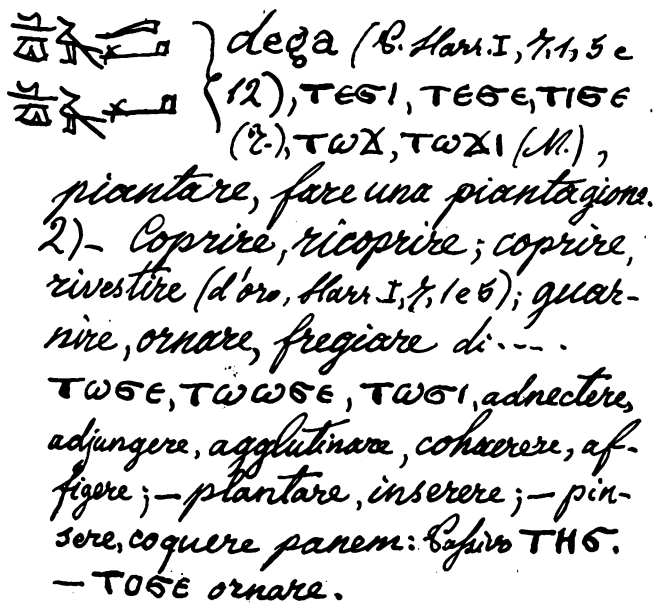 dega (P. Harr. I, 7, 1, 5 e
12), ⲧⲉϭⲓ, ⲧⲉϭⲉ, ⲧⲓϭⲉ
(T.), ⲧⲱϫ, ⲧⲱϫⲓ (M.),
piantare, fare una piantagione.
2)- Coprire, ricoprire; coprire,
rivestire (d'oro, Harr I, 7, 1 e 5); guar-
nire, ornare, fregiare di....
ⲧⲱϭⲉ, ⲧⲱⲱϭⲉ, ⲧⲱϭⲓ, adnectere,
adjungere, agglutinare, cohaerere, af-
figere; — plantare, inserere; — pin-
sere, coquere panem: Passivo ⲧⲏϭ.
— ⲧⲟϭⲉ ornare.